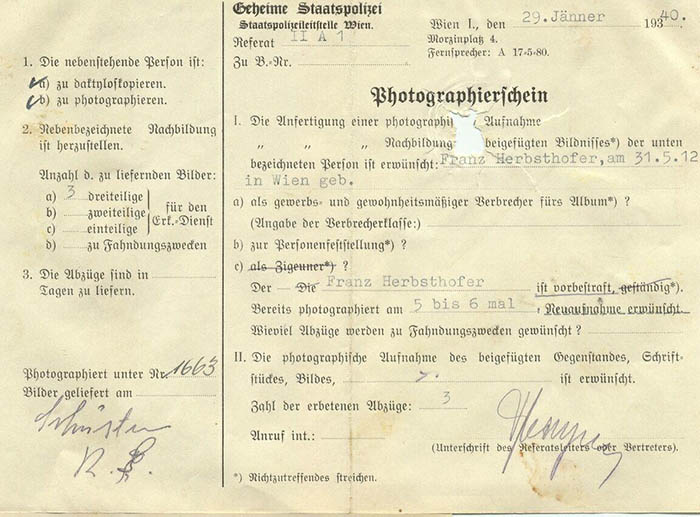 Geheime Staatspolizei
Staatspolizeileitstelle Wien.
Referat II A 1
Zu B.-Nr.
Wien I., den 29. Jänner 1940.
Morzinplatz 4.
Fernsprecher: A 17-5-80.
1. Die nebenstehende Person ist:
a) zu daktyloskopieren.
b) zu photographieren.
2. Nebenbezeichnete Nachbildung
ist herzustellen.
Anzahl d. zu liefernden Bilder:
a) 3 dreiteilige
b) zweiteilige
c) einteilige
für den
Erk.-Dienst
d) zu Fahndungszwecken
3. Die Abzüge sind in
Tagen zu liefern.
Photographiert unter Nr. 1663
Bilder geliefert am
Photographierschein
I. Die Anfertigung einer photographi Aufnahme
„ „ „ Nachbildung beigefügten Bildnisses*) der unten
bezeichneten Person ist erwünscht: Franz Herbsthofer, am 31.5.12
in Wien geb.
a) als gewerbs- und gewohnheitsmäßiger Verbrecher fürs Album*) ?
(Angabe der Verbrecherklasse:)
b) zur Personenfeststellung*) ?
c) als Zigeuner*) ?
Der — Die Franz Herbsthofer ist vorbestraft, geständig*).
Bereits photographiert am 5 bis 6 mal, Neuaufnahme erwünscht.
Wieviel Abzüge werden zu Fahndungszwecken gewünscht ?
II. Die photographische Aufnahme des beigefügten Gegenstandes, Schrift-
stückes, Bildes, ist erwünscht.
Zahl der erbetenen Abzüge: 3
Anruf int.:
(Unterschrift des Referatsleiters oder Vertreters).
*) Nichtzutreffendes streichen.